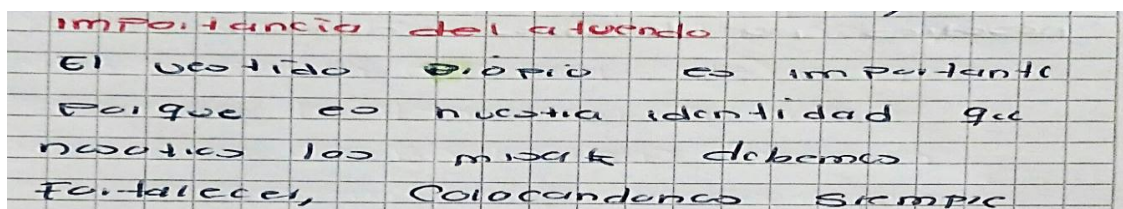 Importancia del atuendo
El vestido propio es importante
Porque es nuestra identidad que
nosotros los misak debemos
Fortalecer, Colocandonos siempre